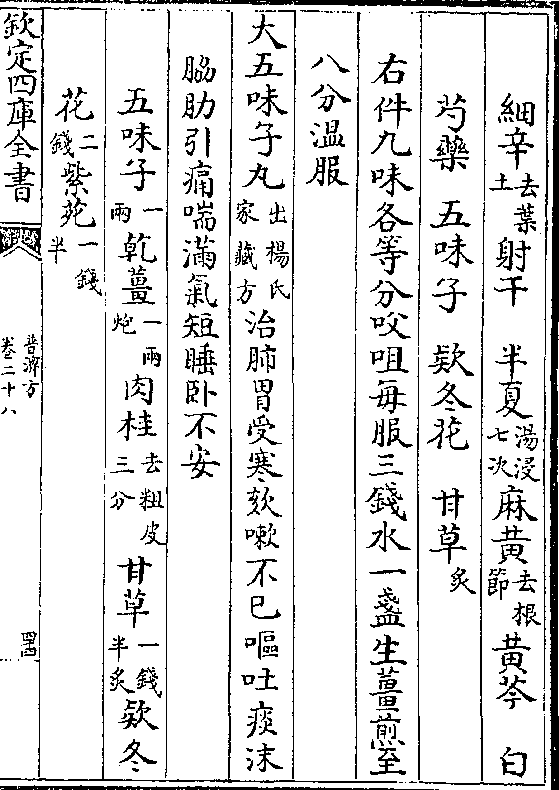 細辛去葉土射干　半夏湯浸七次麻黄去根節黄芩　白
芍藥　五味子　欵冬花　甘草炙
右件九味各等分㕮咀每服三錢水一盞生薑煎至
八分温服
大五味子丸出楊氏家藏方治肺胃受寒欬嗽不已嘔吐痰沫
脇肋引痛喘滿氣短睡卧不安
五味子一兩乾薑一兩炮肉桂去粗皮三分甘草一錢半炙欵冬
花二錢紫苑一錢半
欽定四庫全書
普濟方
卷二十八